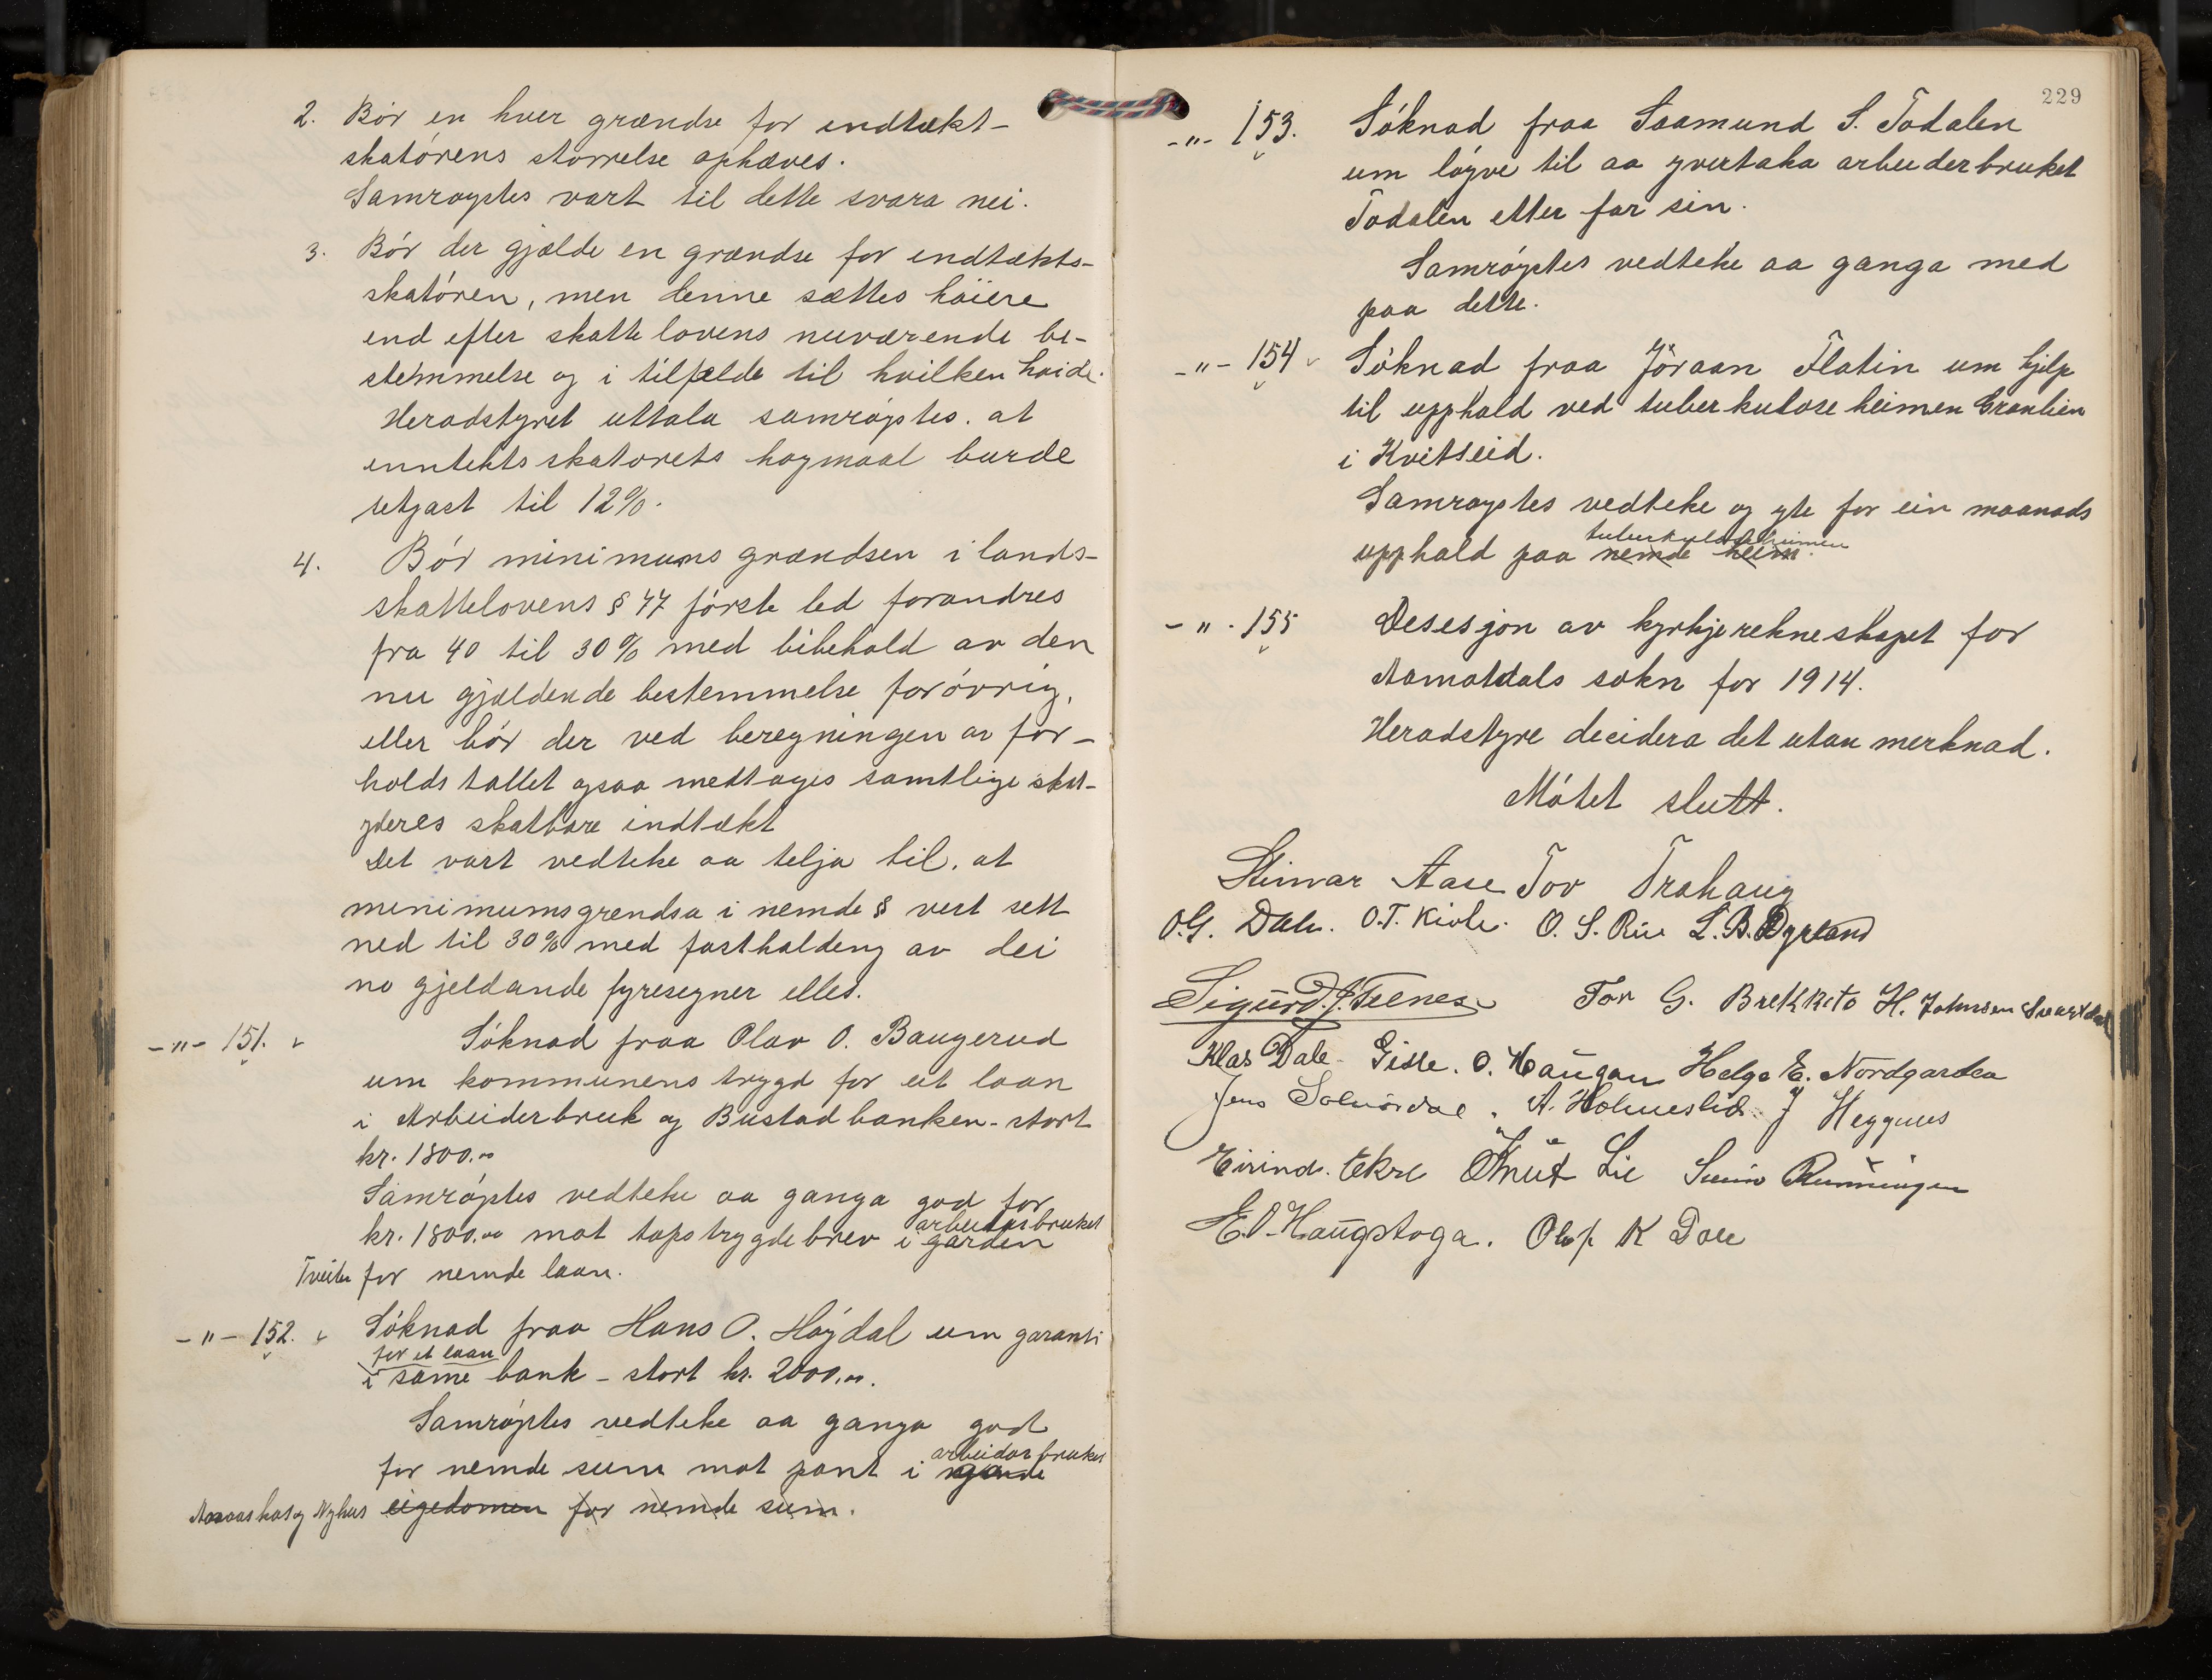 2. Bör en hver grændse for indtækt-
skatörens storrelse ophæves.
Samroystes vart til dette svara nei.
3. Bör der gjælde en grændse for indtækts-
skatören, men denne sættes höiere
end efter skattelovens nuværende be-
stemmelse og i tilfælde til hvilken höide.
Heradstyret uttala samröystes. at
inntektsskatorets hogmaal burde
setjast til 12%.
4. Bör minimumsgrændsen i lands-
skattelovens § 47 förste led forandres
fra 40 til 30% med bibehold av den
nu gjældende bestemmelse foróvrig,
eller bör der ved beregningen av for-
holdstallet ogsaa medtages samtlige skat-
yderes skatbare indtækt
Det vart vedteke aa telja til, at
minimumsgrendsa i nemde § vert sett
ned til 30% med fasthaldeng av dei
no gjeldande fyresegner elles.
-"- 151. Söknad fraa Olav O. Baugerud
um kommunens trygd for eit laan
i Arbeiderbruk og Bustadbanken - stort
kr. 1800.00
Samröystes vedteke aa ganga god for
arbeidarbruket
kr. 1800.00 mot tapstrygdebrev i garden
Tveito for nemde laan.
-"- 152. Söknad fraa Hans O. Höydal um garanti
for et laan
i same bank - stort kr. 2000.00.
Samröystes vedteke aa ganga god
arbeidarbruket
for nemde sum mot pant i
og Nyhus eigedomen for nemde sum.
229
-"- 153. Söknad fraa Saamund S. Todalen
um löyve til aa yvertaka arbeiderbruket
Todalen etter far sin.
Samröystes vedteke aa ganga med
paa dette.
-"- 154 Söknad fraa Jöraan Flatin um hjelp
til upphald ved tuberkuloseheimen Granlien
i Kvitseid.
Samroystes vedteke og yte for ein maanads
tuberkuloseheimen
upphald paa nemde heim.
-"- 155 Desesjon av kyrkjerekneskapet for
Aamotsdals sokn for 1914.
Heradstyre decidera det utan merknad.
Mötet slutt.
Steinar Aase Tov Trahaug
O.G. Dale. O.T. Kivle. O. S. Rui L. B. Dyrland
Sigurd. J. Tvenes Tor G. Brekketo H. Johnsen Svartdal
Klas Dale Gisle. O. Haugan Helge E. Nordgarden
Jens A. Holmeslid J Heggnes
Eivind. Ekre Knut Lie Svein Runningen
E. O. Haugstoga. Olaf K Dale